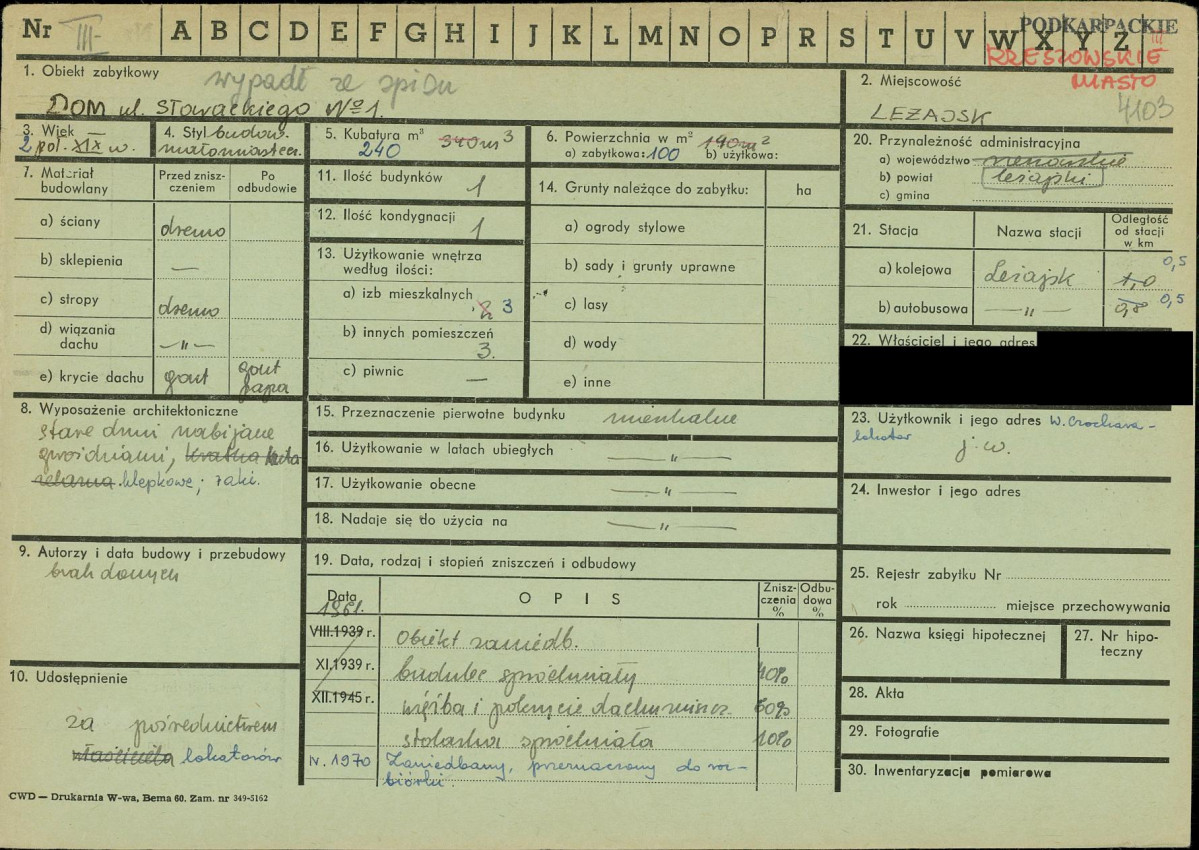 Nr III
A B C D E F G H I J K L M N O P R S T U V W X Y Z
PODKARPACKIE
RZESZOWSKIE
III
MIASTO
4103
1. Obiekt zabytkowy
wypadł ze spisu
DOM ul. Słowackiego Nº 1.
2. Miejscowość
LEŻAJSK
3. Wiek
2 poł. XIX w.
4. Styl budow.
małomiasteczk.
5. Kubatura m³ 340 m³
240
6. Powierzchnia w m² 140 m²
a) zabytkowa: 100 b) użytkowa:
7. Materiał budowlany
Przed zniszczeniem
Po odbudowie
a) ściany drewno
b) sklepienia —
c) stropy drewno
d) wiązania dachu —„—
e) krycie dachu gont gont papa
8. Wyposażenie architektoniczne
stare drzwi nabijane
gwoździami, krata kuta
żelazna klepkowe;
9. Autorzy i data budowy i przebudowy
brak danych
10. Udostępnienie
za pośrednictwem
właściciela lokatorów
11. Ilość budynków 1
12. Ilość kondygnacji 1
13. Użytkowanie wnętrza według ilości:
a) izb mieszkalnych 2 3
b) innych pomieszczeń 3.
c) piwnic —
14. Grunty należące do zabytku: ha
a) ogrody stylowe
b) sady i grunty uprawne
c) lasy
d) wody
e) inne
15. Przeznaczenie pierwotne budynku mieszkalne
16. Użytkowanie w latach ubiegłych —„—
17. Użytkowanie obecne —„—
18. Nadaje się do użycia na —„—
19. Data, rodzaj i stopień zniszczeń i odbudowy
Data OPIS Zniszczenia % Odbudowa %
1961.
VIII.1939 r. Obiekt zaniedb.
XI.1939 r. budulec spróchniały 40%
XII.1945 r. więźba i pokrycie dachu zniszcz. 60%
stolarka spróchniała 10%
IV. 1970 Zaniedbany, przeznaczony do roz-
biórki.
20. Przynależność administracyjna
a) województwo rzeszowskie
b) powiat leżajski
c) gmina
21. Stacja Nazwa stacji Odległość od stacji w km
a) kolejowa Leżajsk 1,0 0,5
b) autobusowa —„— 0,8 0,5
22. Właściciel i jego adres
23. Użytkownik i jego adres W. Czochara -
lokator
j.w.
24. Inwestor i jego adres
25. Rejestr zabytku Nr
rok miejsce przechowywania
26. Nazwa księgi hipotecznej
27. Nr hipoteczny
28. Akta
29. Fotografie
30. Inwentaryzacja pomiarowa
CWD — Drukarnia W-wa, Bema 60. Zam. nr 349-5162